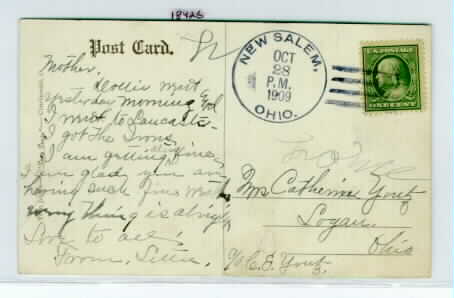 18426
Post Card.
NEW SALEM,
OCT
28
P.M.
1909
OHIO.
U.S. POSTAGE
ONE CENT
Mother,
Dollie went
yesterday morning and
I went to Lancaster.
I got the Irons
I am getting fine,
I am glad you are
having such fine
every thing is alright
Love to all,
From,
Mrs Catherine Yontz
Logan,
Ohio
c/o C. E. Yontz.